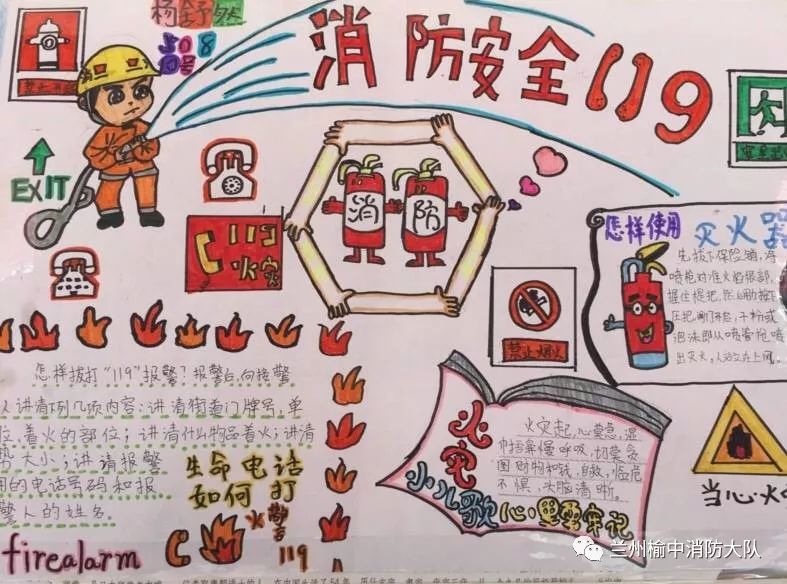 杨舒然
508
消防安全119
EXIT
119
火灾
消 防
怎样使用 灭火器
先拔下保险销,将
喷枪对准火焰根部,
握住提把,然后用力按下
压把,阀门开启,干粉或
泡沫即从喷管枪喷
出灭火,人站立在上风。
禁止烟火
怎样拨打“119”报警?报警后,向接警
人讲清下列几项内容:讲清街道门牌号,单
位,着火的部位;讲清什么物品着火;讲清
势大小;讲请报警
用的电话号码和报
警人的姓名。
生命电话
如何打
火警
119
firealarm
火灾
小儿歌
火灾起,心莫急,湿
巾捂鼻慢呼吸,切莫贪
图财物和钱,自救,临危
不惧,头脑清晰。
心里要牢记
当心火
兰州榆中消防大队